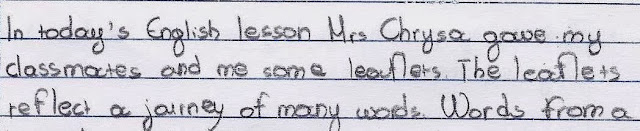 In today's English lesson Mrs Chrysa gave my
classmates and me some leaflets. The leaflets
reflect a journey of many words. Words from a